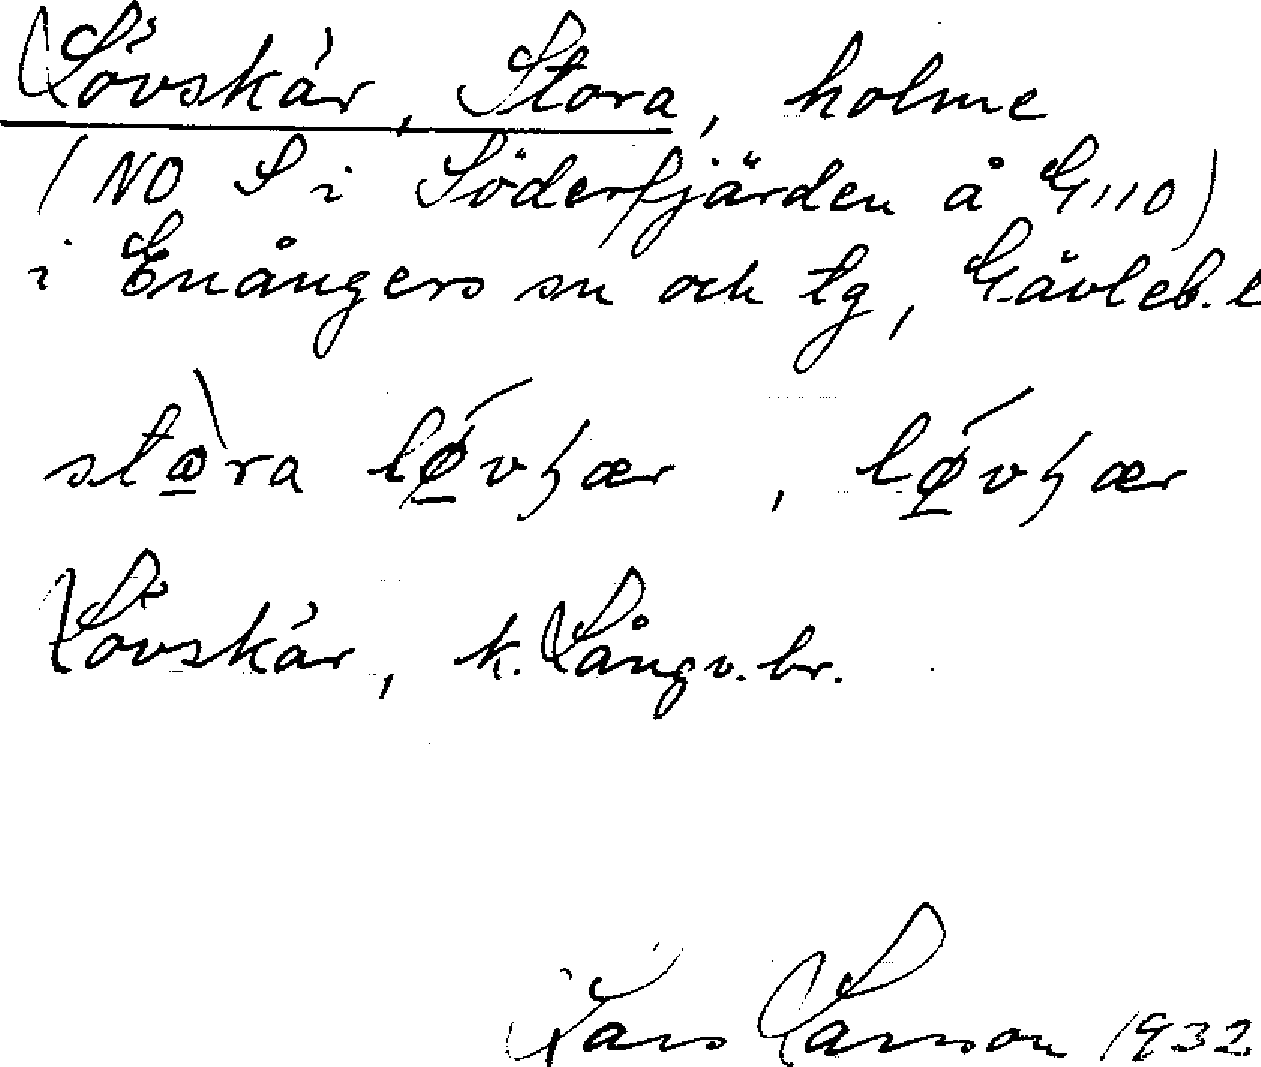 Lövskär, Stora, holme
(NO S i Söderfjärden å G110)
i Enångers sn och tg, Gävleb. l
stòra lǿvʂær, lǿvʂær
Lövskär, k. Långv. br.
Lars Larsson 1932